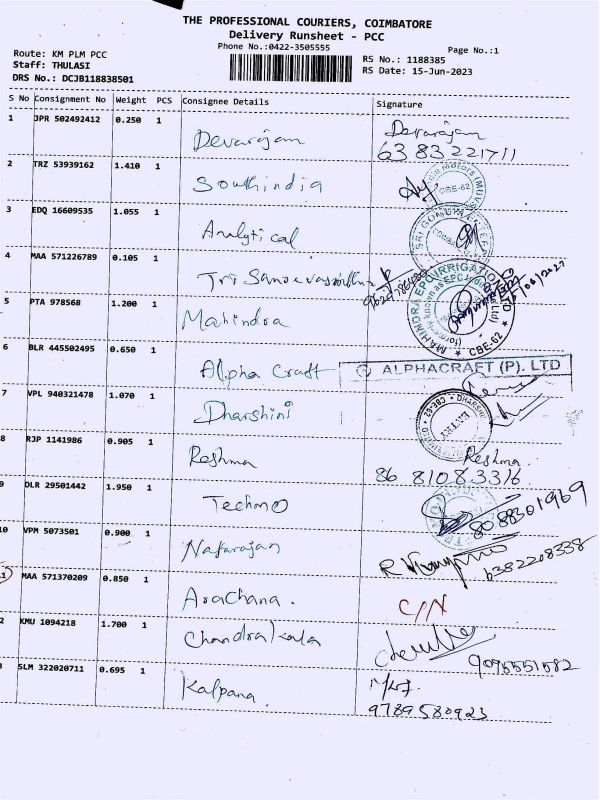 THE PROFESSIONAL COURIERS, COIMBATORE
Delivery Runsheet - PCC
Phone No.:0422-3505555
Page No.:1
Route: KM PLM PCC
Staff: THULASI
DRS No.: DCJB118838501
RS No.: 1188385
RS Date: 15-Jun-2023
S No Consignment No Weight PCS Consignee Details Signature
1 JPR 502492412 0.250 1 Devarajan Devarajan
63 83 221711
2 TRZ 53939162 1.410 1 Southindia
CBE-62
3 EDQ 16609535 1.055 1 Analytical
4 MAA 571226789 0.105 1 Tri
5 PTA 978568 1.200 1 Mahindra
MAHINDRA EPC IRRIGATION LTD
CBE-62
6 BLR 445502495 0.650 1 Alpha Craft ALPHACRAFT (P). LTD
7 VPL 940321478 1.070 1 Dharshini
CBE-62
8 RJP 1141986 0.905 1 Reshma Reshma
86 81083316
9 DLR 29501442 1.950 1 Techno 8088301969
10 VPM 5073501 0.900 1 Natarajan
6382208338
11 MAA 571370209 0.850 1 Arachana. C/N
2 KMU 1094218 1.700 1 Chandrakala
9095551582
3 SLM 322020711 0.695 1 Kalpana.
9789580923